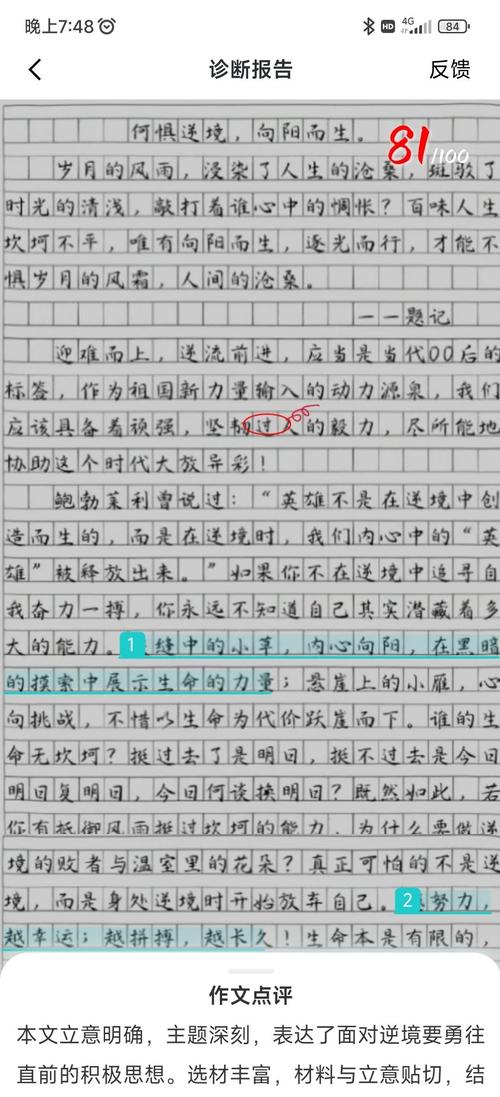 晚上7:48
HD 4G 84
诊断报告
反馈
何惧逆境，向阳而生。
81/100
岁月的风雨，浸染了人生的沧桑，斑驳了
时光的清浅，敲打着谁心中的惆怅？百味人生
坎坷不平，唯有向阳而生，逐光而行，才能不
惧岁月的风霜，人间的沧桑。
——题记
迎难而上，逆流前进，应当是当代00后的
标签，作为祖国新力量输入的动力源泉，我们
应该具备着顽强，坚韧过人的毅力，尽所能地
协助这个时代大放异彩！
鲍勃莱利曾说过：“英雄不是在逆境中创
造而生的，而是在逆境时，我们内心中的“英
雄”被释放出来。”如果你不在逆境中追寻自
我奋力一搏，你永远不知道自己其实潜藏着多
大的能力。1缝中的小草，内心向阳，在黑暗
的摸索中展示生命的力量；悬崖上的小雁，心
向挑战，不惜以生命为代价跃崖而下。谁的生
命无坎坷？挺过去了是明日，挺不过去是今日
明日复明日，今日何谈换明日？既然如此，若
你有抵御风雨挺过坎坷的能力，为什么要做逆
境的败者与温室里的花朵？真正可怕的不是逆
境，而是身处逆境时开始放弃自己。2努力，
越幸运；越拼搏，越长久！生命本是有限的，
作文点评
本文立意明确，主题深刻，表达了面对逆境要勇往
直前的积极思想。选材丰富，材料与立意贴切，结